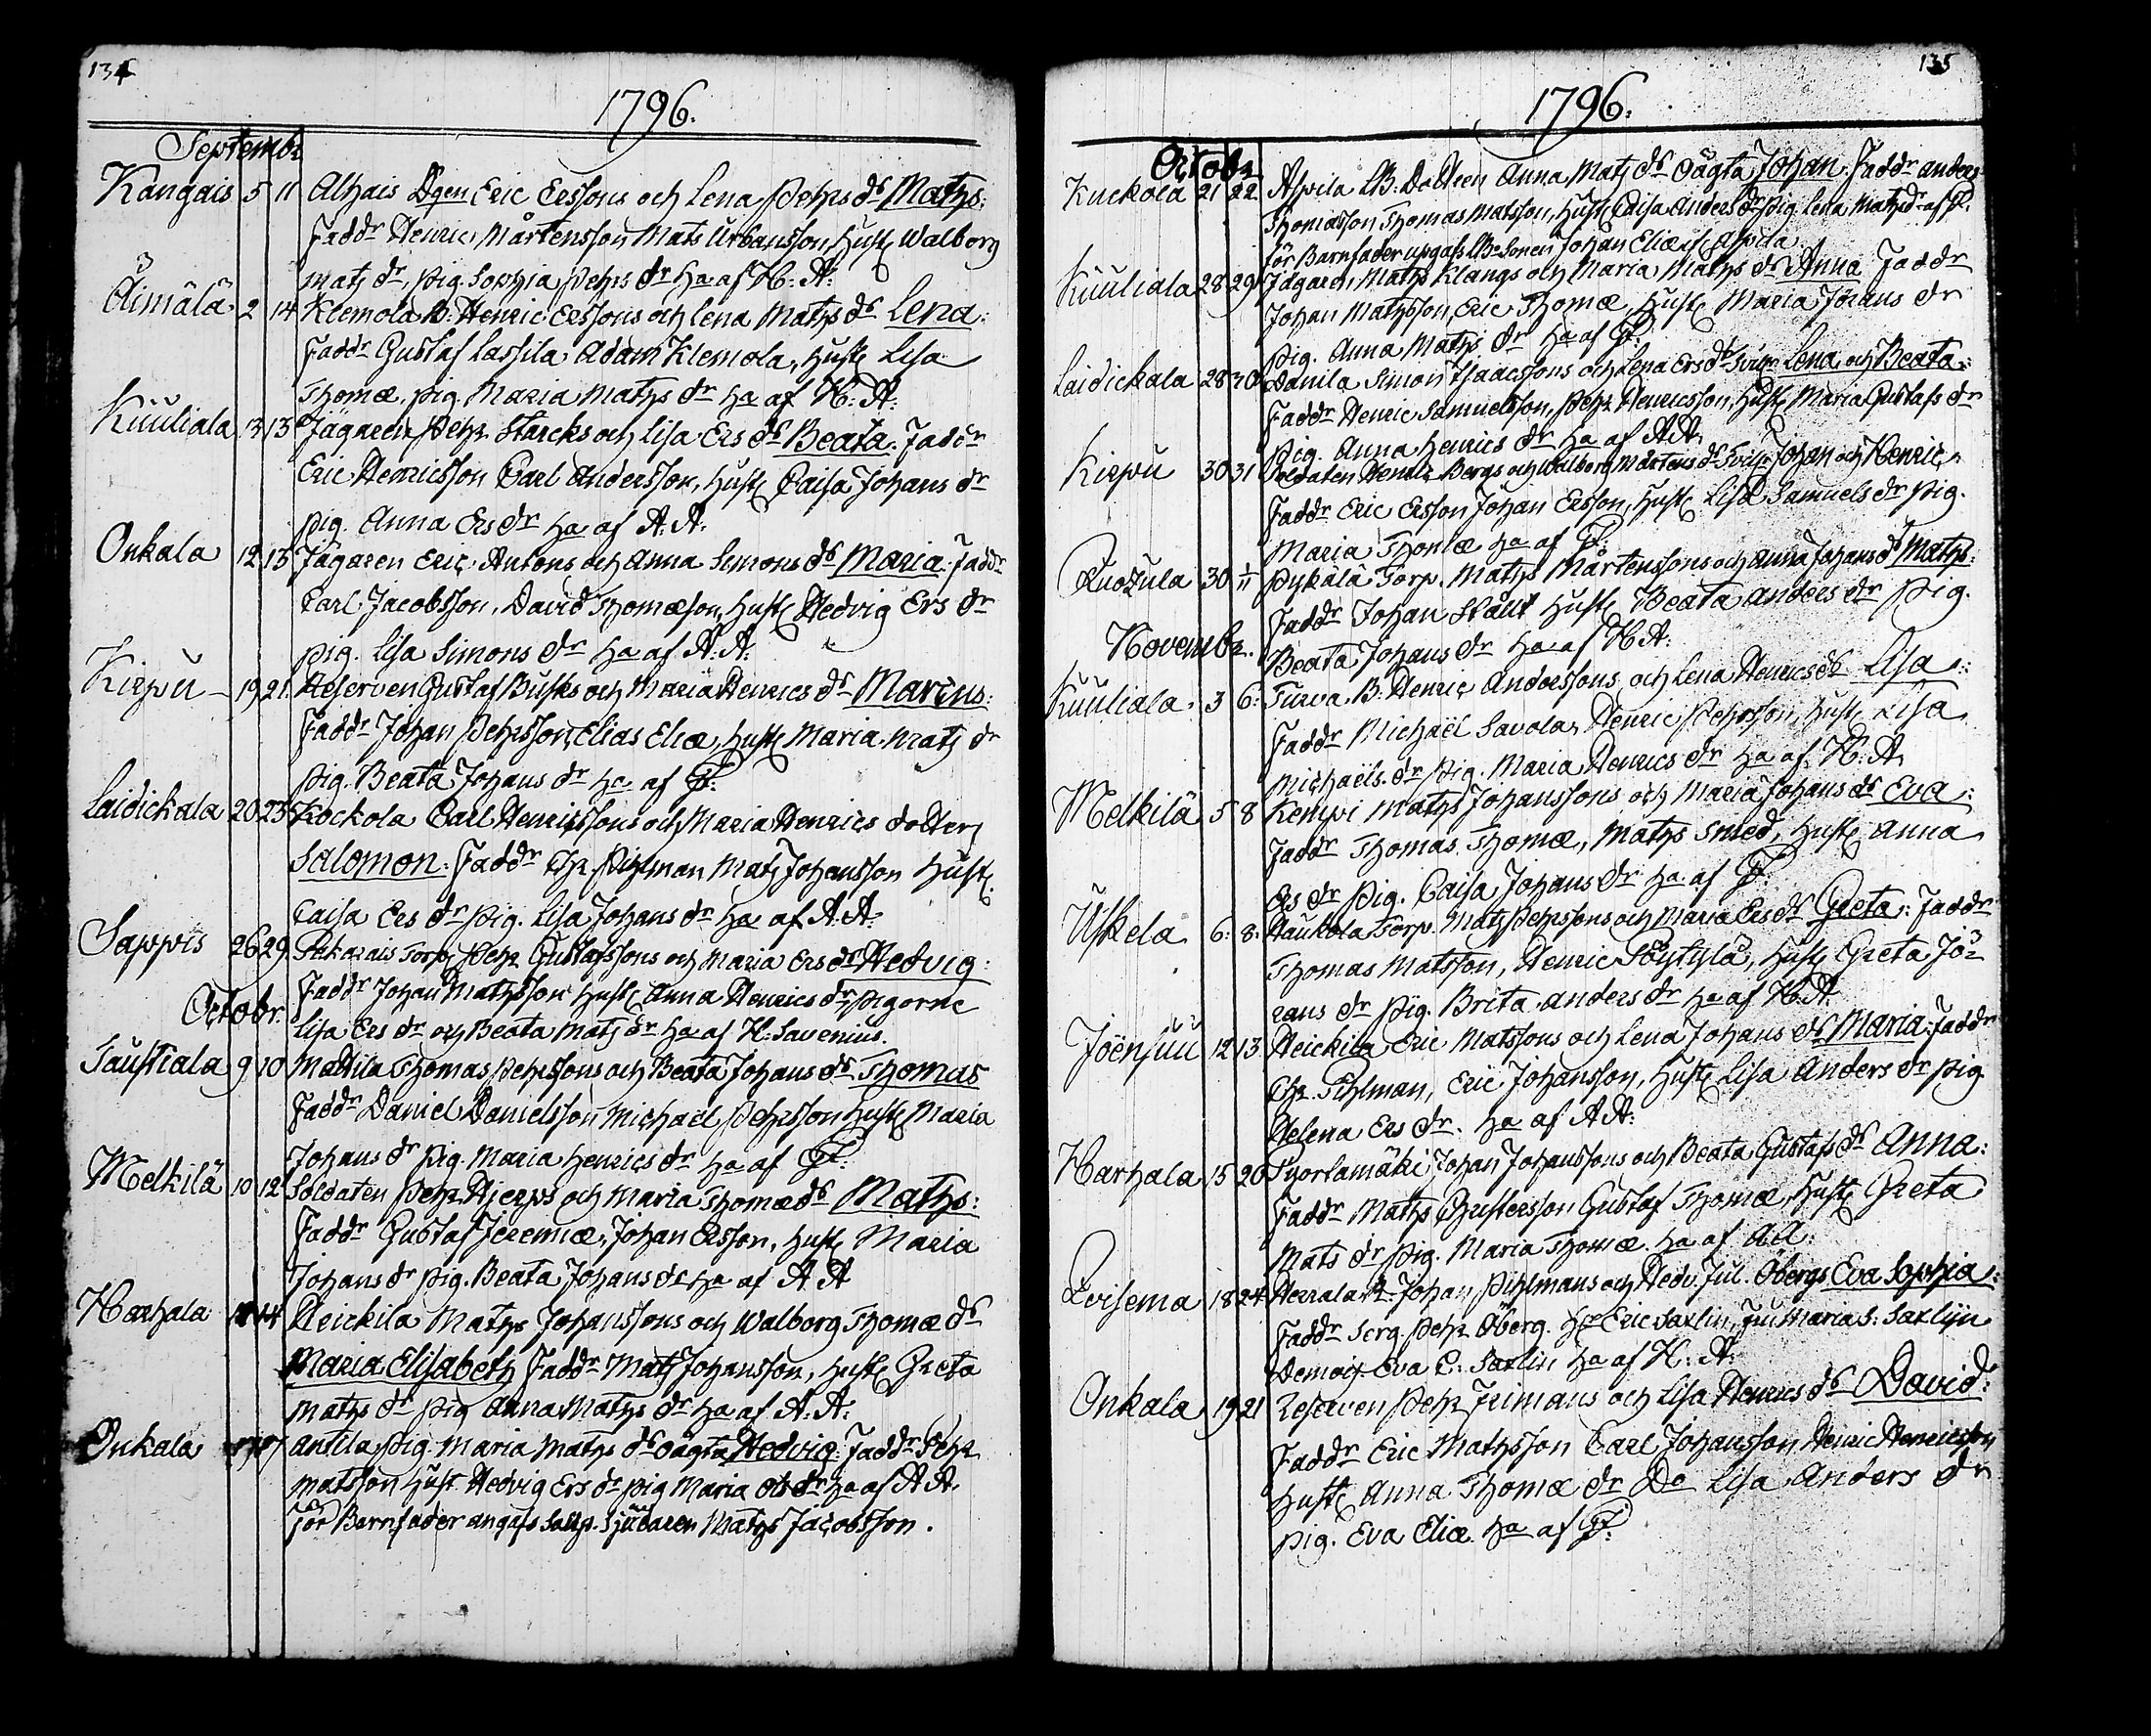 134
1796.
Septembr
Kangais 5 11 Alhais Dgen Eric Erssons och Lena Pehrs ds Maths:
Faddr Henric Mårtensson Mats Urbansson, Hust. Walborg
Mats dr, Pig. Sophia Pehrs dr Ha af H: A:
Äimälä 2 14 Klemola B: Henric Erssons och Lena Maths ds Lena:
Faddr Gustaf Lassila, Adam Klemola, Hust. Lisa
Thomæ, Pig. Maria Maths dr ha af H: A:
Kuuliala 13 13 Jägaren Pehr Starcks och Lisa Ers ds Beata. Faddr
Eric Henricsson Carl Andersson, Hust. Caisa Johans dr
Pig. Anna Ers dr ha af A: A:
Onkala 12 13 Jägaren Eric Antons och Anna Simons ds Maria. Faddr
Carl Jacobsson, David Thomæson, Hust. Hedvig Ers dr
Pig. Lisa Simons dr ha af A: A:
Kirpu 19 21 Reserven Gustaf Busks och Maria Henrics dr Marcus:
Faddr Johan Pehrsson, Elias Eliæ, Hust. Maria Mats dr
Pig. Beata Johans dr ha af
Laidickala 20 23 Kockola Carl Henricssons och Maria Henrics dotters
Salomon: Faddr Chr. Pihlman Mats Johansson Hust.
Caisa Ers dr Pig. Lisa Johans dr ha af A: A:
Sappis 26 29 Pekarais Torp. Pehr Gustafssons och Maria Ers dr Hedvig:
Faddr Johan Mathsson Hust. Anna Henrics dr Pigorne
Octobr.
Lisa Ers dr och Beata Mats dr ha af H: Savenius.
Taustiala 9 10 Mattila Thomas Pehrssons och Beata Johans ds Thomas
Faddr Daniel Danielsson Michaël Pehrsson Hust. Maria
Johans dr Pig. Maria Henrics dr ha af
Melkilä 10 12 Soldaten Pehr Hjerps och Maria Thomæ ds Maths:
Faddr Gustaf Jeremiæ, Johan Ersson, Hust. Maria
Johans dr Pig. Beata Johans dr ha af A A
Harhala 14 Heickila Maths Johanssons och Walborg Thomæ ds
Maria Elisabeth Faddr Mats Johansson, Hust. Greta
Maths dr Pig Anna Maths dr ha af A: A:
Onkala 17 Antila Pig. Maria Maths ds oägta Hedvig: Faddr Pehr
Matsson Hust Hedvig Ers dr Pig Maria dr ha af A A.
för Barnfader angafs Maths Jacobsson.
135
1796.
Octobr
Kuckola 21 22 Aspila B: Dottren Anna Mats ds oägta Johan. Faddr Anders
Thomæsson Thomas Matsson, Hust. Caisa Anders dr Pig. Lena Mats dr af
för Barnfader upgafs B: Sonen Johan Eliæ f. Aspila
Kuuliala 28 29 Jägaren Maths Klangs och Maria Maths dr Anna Faddr
Johan Mathsson, Eric Thomæ, Hust. Maria Johans dr
Pig. Anna Maths dr ha af
Laidickala 28 30 Danila Simon Isaacssons och Lena Ers ds Tvill: Lena och Beata:
Faddr Henric Samuelsson, Pehr Henricsson, Hust. Maria Gustafs dr
Pig. Anna Henrics dr ha af A A.
Kirpu 30 31 Soldaten Henric Bergs och Walborg Mårtens ds Tvill: Johan och Henric
Faddr Eric Ersson Johan Ersson, Hust. Lisa Samuels dr Pig.
Maria Thomæ ha af
30 1/11 Pykälä Torp. Maths Mårtenssons och Anna Johans ds Maths:
Faddr Johan Stålt Hust. Beata Anders dr Pig.
Novembr.
Beata Johans dr ha af H A:
Kuuliala 3 6: Turva B: Henric Anderssons och Lena Henrics ds Lisa:
Faddr Michaël Savola, Henric Pehrsson, Hust. Lisa
Michaëls dr Pig. Maria Henrics dr ha af H: A
Melkilä 5 8 Kempi Maths Johanssons och Maria Johans ds Eva:
Faddr Thomas Thomæ, Maths Smed, Hust. Anna
Ers dr Pig. Caisa Johans dr ha af
Uskela 6: 8: Naukola Torp. Mats Pehrssons och Maria Ers ds Greta: Faddr
Thomas Matsson, Henric Söytylä, Hust. Greta Jö-
rans dr Pig. Brita Anders dr ha af H: A
Joënsuu 12 13. Heickila Eric Matssons och Lena Johans ds Maria: Faddr
Chr. Pihlman, Eric Johansson, Hust. Lisa Anders dr Pig.
Helena Ers dr. ha af A A:
Harhala 15 20 Syorlamäki Johan Johanssons och Beata Gustafs ds Anna:
Faddr Maths Christersson Gustaf Thomæ, Hust. Greta
Mats dr Pig. Maria Thomæ ha af AA:
18 24 Herrala R: Johan Pihlmans och Hedv. Jul. Öbergs Eva Sophia:
Faddr Serg. Pehr Öberg. Hr Eric Saxlin, Fru Maria S: Saxlijn
Demois. Eva C. Saxlin ha af H: A:
Onkala 19 21 Reserven Pehr Frimans och Lisa Henrics ds David:
Faddr Eric Mathsson Carl Johansson Henric Henricsson
Hust. Anna Thomæ dr Do Lisa Anders dr
Pig. Eva Eliæ ha af